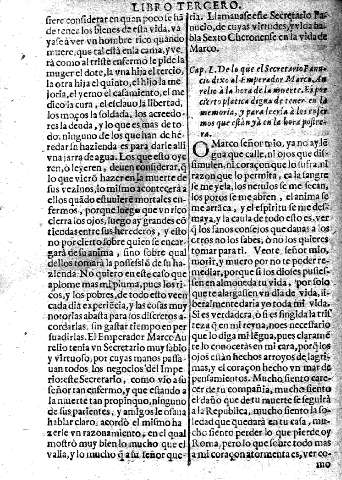 LIBRO TERCERO.
siere considerar en quan poco se hà
de tener los bienes de esta vida, vá
yase à ver vn hombre rico quando
muere, que tal està en la cama, y ve-
rá como al triste enfermo le pide la
muger el dote, la vna hija el tercio,
la otra hija el quinto, el hijo la me-
joria, el yerno el casamiento, el me
dico la cura, el esclauo la libertad,
los moços la soldada, los acreedo-
res la deuda, y lo que es mas de to-
do: ninguno de los que han de he-
redar su hazienda es para darle alli
vna jarra de agua. Los que esto oye-
ren, ò leyeren, deuen considerar, q̃
lo que vierõ hazer en la muerte de
sus vezinos, lo mismo acontecerá a
ellos quãdo estuuieren mortales en-
fermos, porque luego que vn rico
cierra los ojos, luego ay grandes cõ
tiendas entre sus herederos, y esto
no por cierto sobre quien se encar-
gará de su anima, sino sobre qual
dellos tomará la possessiõ de su ha-
zienda. No quiero en este caso que
aplome mas mi pluma, pues los ri-
cos, y los pobres, de todo esto veen
cada dia experiencia, y las cosas muy
notorias abasta para los discretos a-
cordarlas, sin gastar tiempo en per-
suadirlas. El Emperador Marco Au
relio tenia vn Secretario muy sabio
y virtuoso, por cuyas manos passa-
uan todos los negocios del Impe-
rio: este Secretario, como vio a su
señor tan enfermo, y que estando a
la muerte tan propinquo, ninguno
de sus parientes, y amigos le osaua
hablar claro, acordò el mismo ha
zerle vn razonamiento, en el qual
mostrò muy bien lo mucho que el
valia, y lo mucho q̃ a su señor que-
ria. Llamauase este Secretario Pa-
nucio, de cuyas virtudes, y vida ha-
bla Sexto Cheronense en la vida de
Marco.
Cap. L. De lo que el Secretario Panu-
cio dixo al Emperador Marco Au-
relio à la hora de la muerte. Es por
cierto platica digna de tener en la
memoria, y para leerla à los enfer-
mos que están ya en la hora postre-
ra.
O Marco señor mio, ya no ay lẽ
gua que calle, ni ojos que dis-
simulen, ni coraçon que lo sufra ni
razon que lo permita, ca la sangre
se me yela, los neruios se me secan,
los poros se me abren, el anima se
me arrica, y el espiritu se me des-
maya, y la causa de todo esto es, ver
q̃ los sanos consejos que dauas a los
otros no los sabes, ò no los quieres
tomar para ti. Veote señor mio,
morir, y muero por no te poder re-
mediar, porque si los dioses pusies-
sen en almoneda tu vida, por solo
que te alargassen vn dia de vida, li-
beralmente daria yo toda mi vida.
Si es verdadera, ò si es fingida la tris
teza q̃ en mi reyna, no es necessario
que lo diga mi lẽgua, pues claramẽ
te lo conoceràs en mi cara, porq̃ los
ojos están hechos arroyos de lagri-
mas, y el coraçon hecho vn mar de
pensamientos. Mucho siento care-
cer de tu compañia, mucho siento
el daño que de tu muerte se seguirà
a la Republica, mucho siento la so-
ledad que quedarà en tu casa, mu-
cho siento perder lo que pierde oy
Roma, pero lo que sobre todo mas
a mi coraçon atormenta es, ver co-
mo